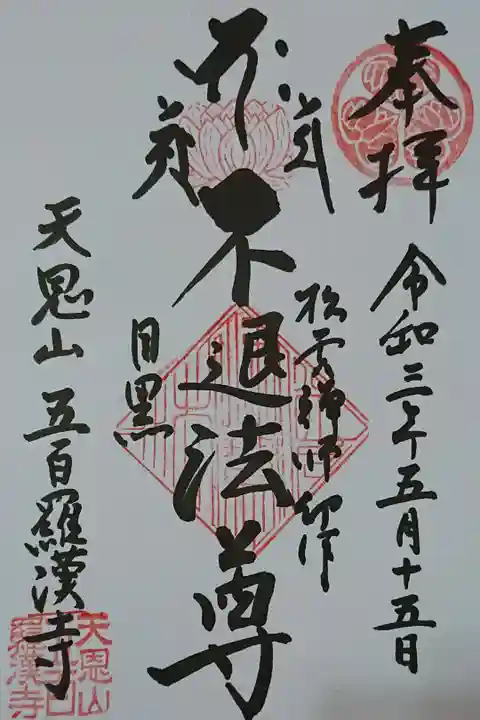 奉拝
令和三年五月十五日
松雲禅師御作
不退法尊
目黒
天恩山 五百羅漢寺
天恩山
羅漢寺